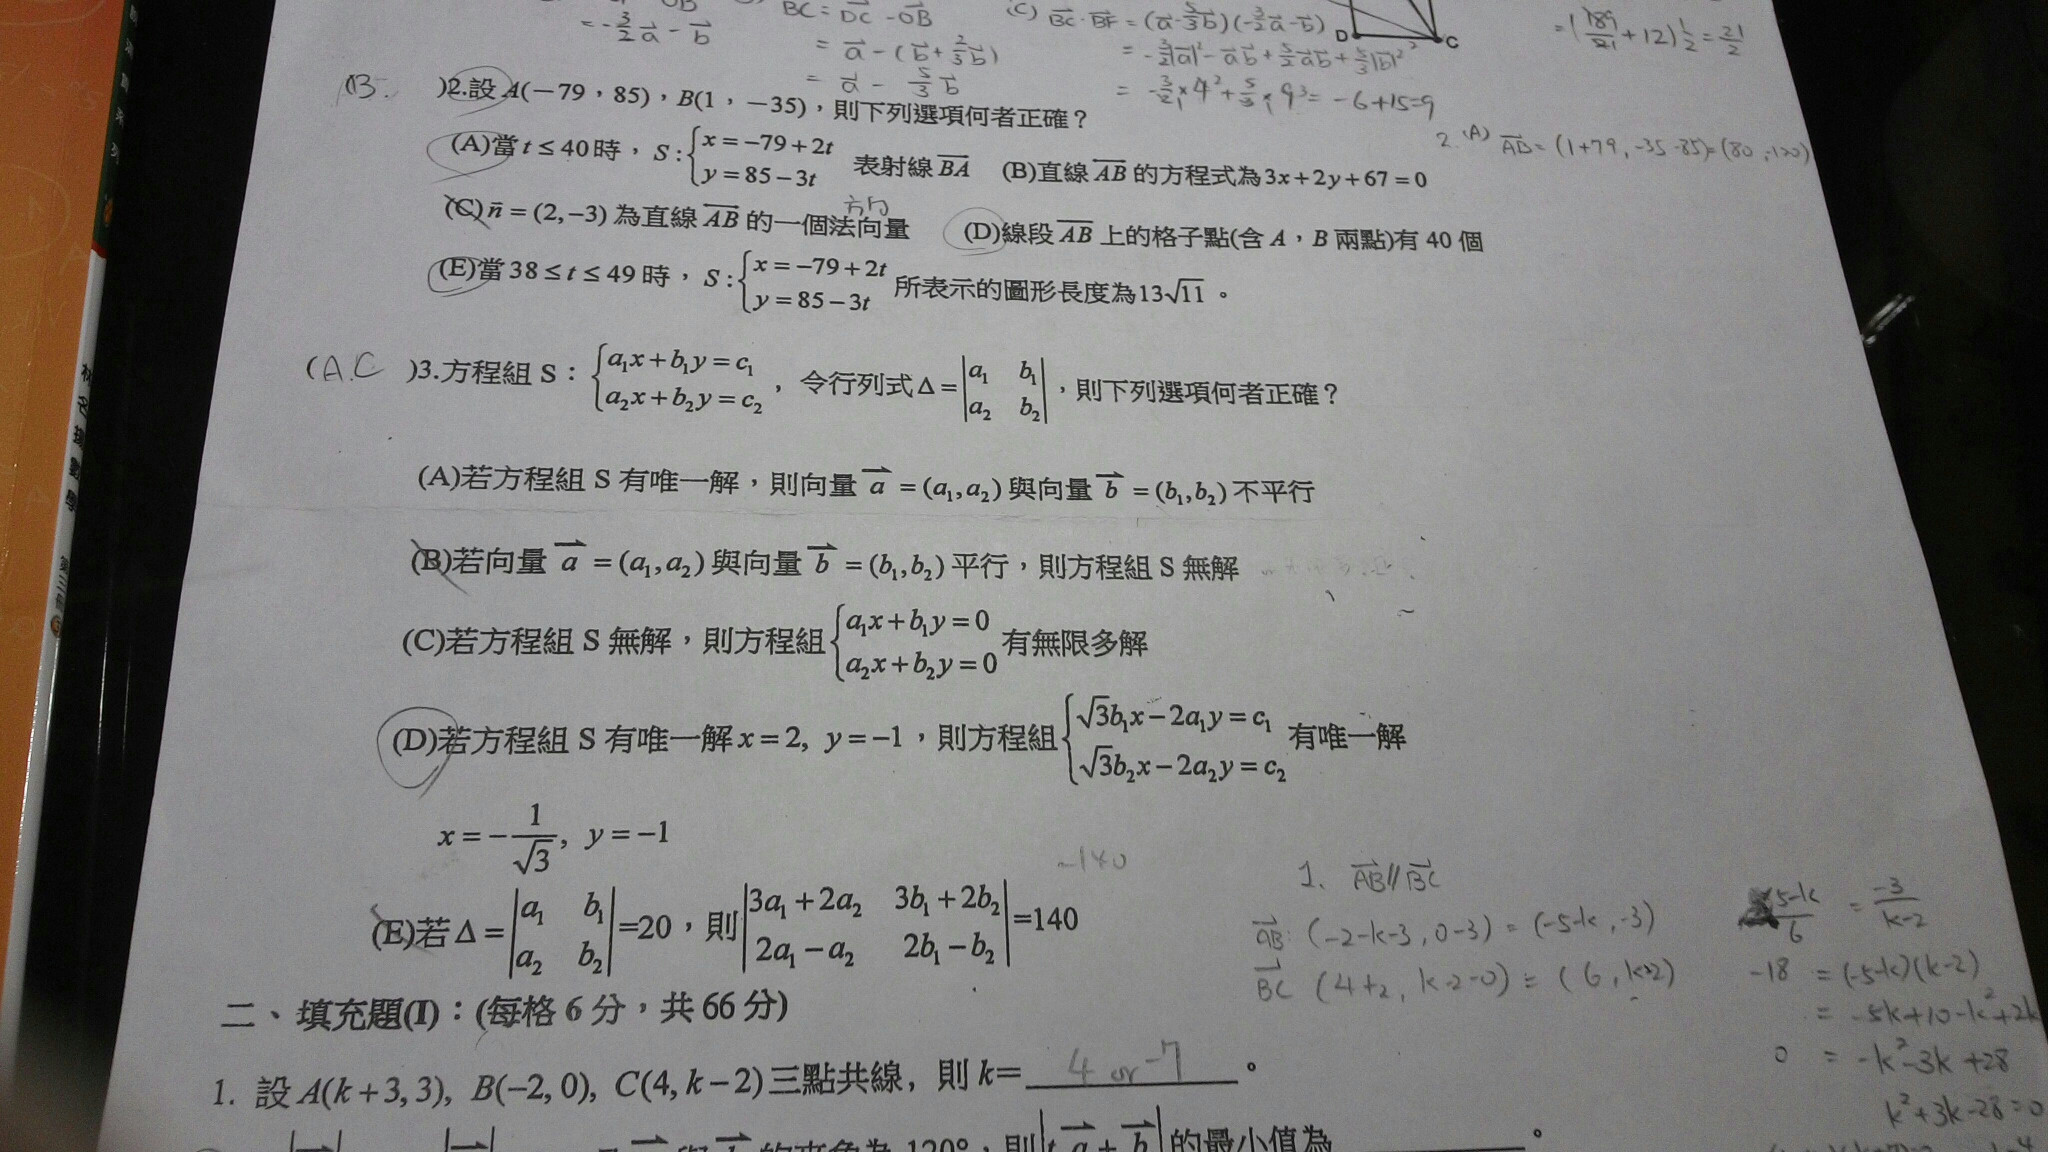 = -3/2 a⃗ - b⃗
BC⃗ = DC⃗ - OB⃗
= a⃗ - (b⃗ + 2/3 b⃗)
= a⃗ - 5/3 b⃗
(C) BC⃗ · BF⃗ = (a⃗ - 5/3 b⃗)(-3/2 a⃗ - b⃗)
= -3/2|a|² - a⃗b⃗ + 5/2 a⃗b⃗ + 5/3|b|²
= -6+15=9
D
C
(B. )2.設 A(−79，85)，B(1，−35)，則下列選項何者正確？
(A)當 t ≤ 40 時，S : { x = −79 + 2t
y = 85 − 3t 表射線 BA (B)直線 AB 的方程式為 3x + 2y + 67 = 0
方向
(C) n⃗ = (2, −3) 為直線 AB 的一個法向量 (D)線段 AB 上的格子點(含 A，B 兩點)有 40 個
(E)當 38 ≤ t ≤ 49 時，S : { x = −79 + 2t
y = 85 − 3t 所表示的圖形長度為 13√11 。
2. (A) AB⃗ = (1+79, -35-85) = (80, -120)
(A.C )3.方程組 S： { a₁x + b₁y = c₁
a₂x + b₂y = c₂ ，令行列式 Δ = | a₁ b₁ |
| a₂ b₂ | ，則下列選項何者正確？
(A)若方程組 S 有唯一解，則向量 a⃗ = (a₁, a₂) 與向量 b⃗ = (b₁, b₂) 不平行
(B)若向量 a⃗ = (a₁, a₂) 與向量 b⃗ = (b₁, b₂) 平行，則方程組 S 無解
(C)若方程組 S 無解，則方程組 { a₁x + b₁y = 0
a₂x + b₂y = 0 有無限多解
(D)若方程組 S 有唯一解 x = 2, y = −1，則方程組 { √3b₁x − 2a₁y = c₁
√3b₂x − 2a₂y = c₂ 有唯一解
x = − 1/√3, y = −1
-140
(E)若 Δ = | a₁ b₁ |
| a₂ b₂ | =20，則 | 3a₁ + 2a₂ 3b₁ + 2b₂ |
| 2a₁ − a₂ 2b₁ − b₂ | =140
1. AB⃗ // BC⃗
AB⃗: (-2-k-3, 0-3) = (-5-k, -3)
BC⃗ (4+2, k-2-0) = (6, k-2)
-5-k/6 = -3/k-2
-18 = (-5-k)(k-2)
= -5k+10-k²+2k
0 = -k²-3k+28
k²+3k-28=0
二、填充題(I)：(每格 6 分，共 66 分)
1. 設 A(k + 3, 3), B(−2, 0), C(4, k − 2) 三點共線，則 k = 4 or -7 。
的夾角為 120°，則 |t a⃗ + b⃗| 的最小值為 。